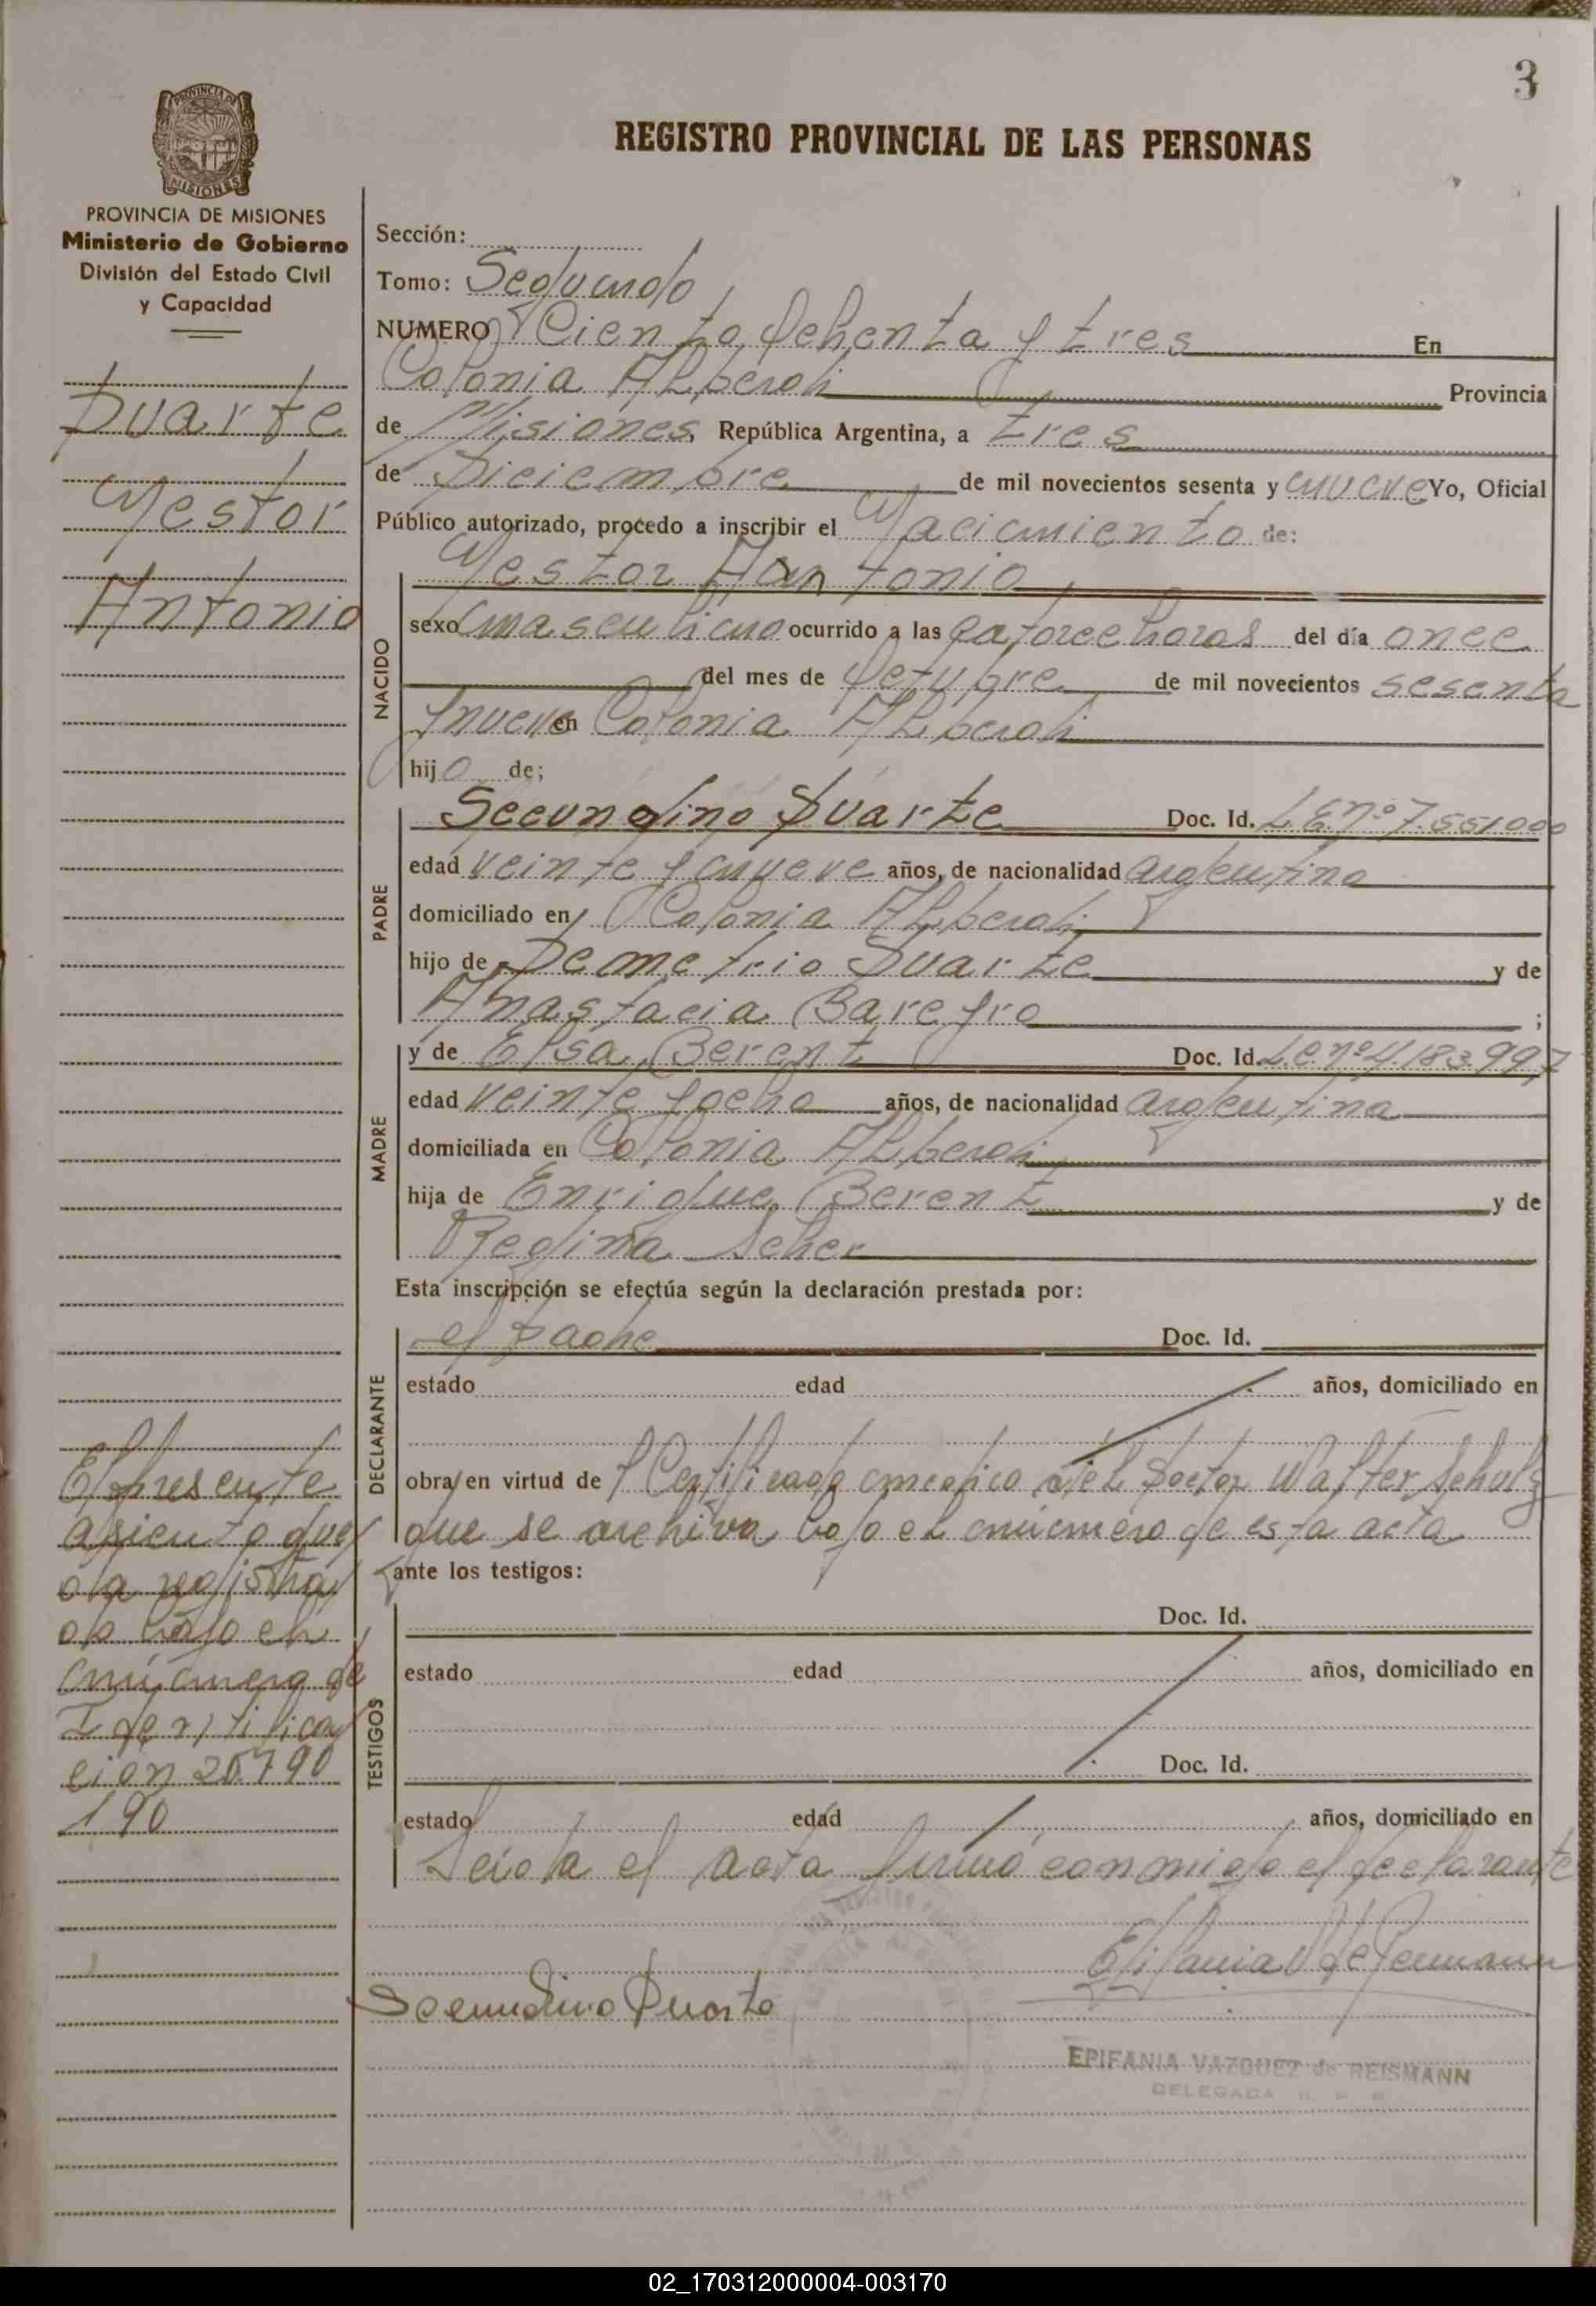 3
PROVINCIA DE
MISIONES
REGISTRO PROVINCIAL DE LAS PERSONAS
PROVINCIA DE MISIONES
Ministerio de Gobierno
División del Estado Civil
y Capacidad
Duarte
Nestor
Antonio
Sección:
Tomo: Segundo
NUMERO Ciento Ochenta y tres En
Colonia Alberdi Provincia
de Misiones República Argentina, a tres
de Diciembre de mil novecientos sesenta y nueve Yo, Oficial
Público autorizado, procedo a inscribir el Nacimiento de:
NACIDO
Nestor Antonio
sexo masculino ocurrido a las catorce horas del día once
del mes de Octubre de mil novecientos sesenta
y nueve en Colonia Alberdi
hijo de;
PADRE
Secundino Duarte Doc. Id. L.E. nº 7.551000
edad veinte y nueve años, de nacionalidad argentina
domiciliado en Colonia Alberdi
hijo de Demetrio Duarte y de
Anastacia Bareyro ;
MADRE
y de Elsa Berent Doc. Id. L.C. nº 4.183.997
edad veinte y ocho años, de nacionalidad argentina
domiciliada en Colonia Alberdi
hija de Enrique Berent y de
Regina Scher
Esta inscripción se efectúa según la declaración prestada por:
DECLARANTE
el padre Doc. Id.
estado edad años, domiciliado en
obra en virtud de y Certificado medico del Doctor Walter Schulz
que se archiva bajo el número de esta acta
ante los testigos:
TESTIGOS
Doc. Id.
estado edad años, domiciliado en
Doc. Id.
estado edad años, domiciliado en
Leída el acta firmó conmigo el declarante
El presente
asiento que
da registra
do bajo el
número de
Identifica
cion 20.790
190
Secundino Duarte
EPIFANIA VAZQUEZ de REISMANN
DELEGADA
02_170312000004-003170